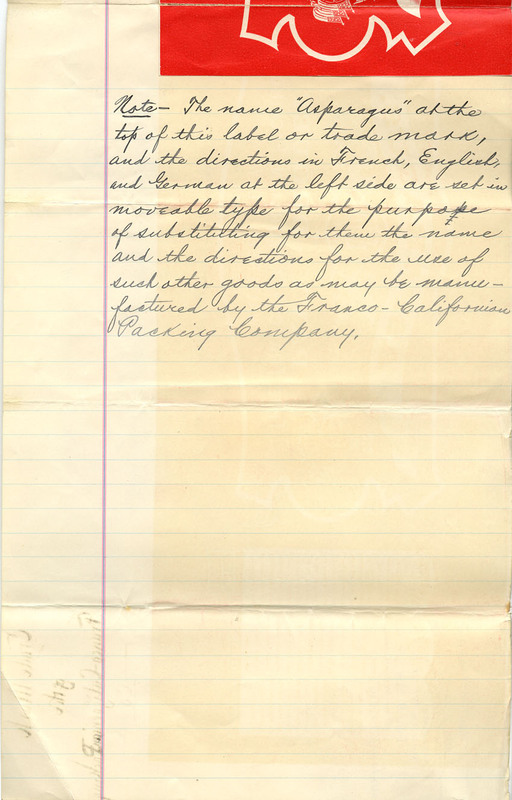 Note – The name "Asparagus" at the
top of this label or trade mark,
and the directions in French, English,
and German at the left side are set in
moveable type for the purpose
of substituting for them the name
and the directions for the use of
such other goods as may be manu-
factured by the Franco-Californian
Packing Company.